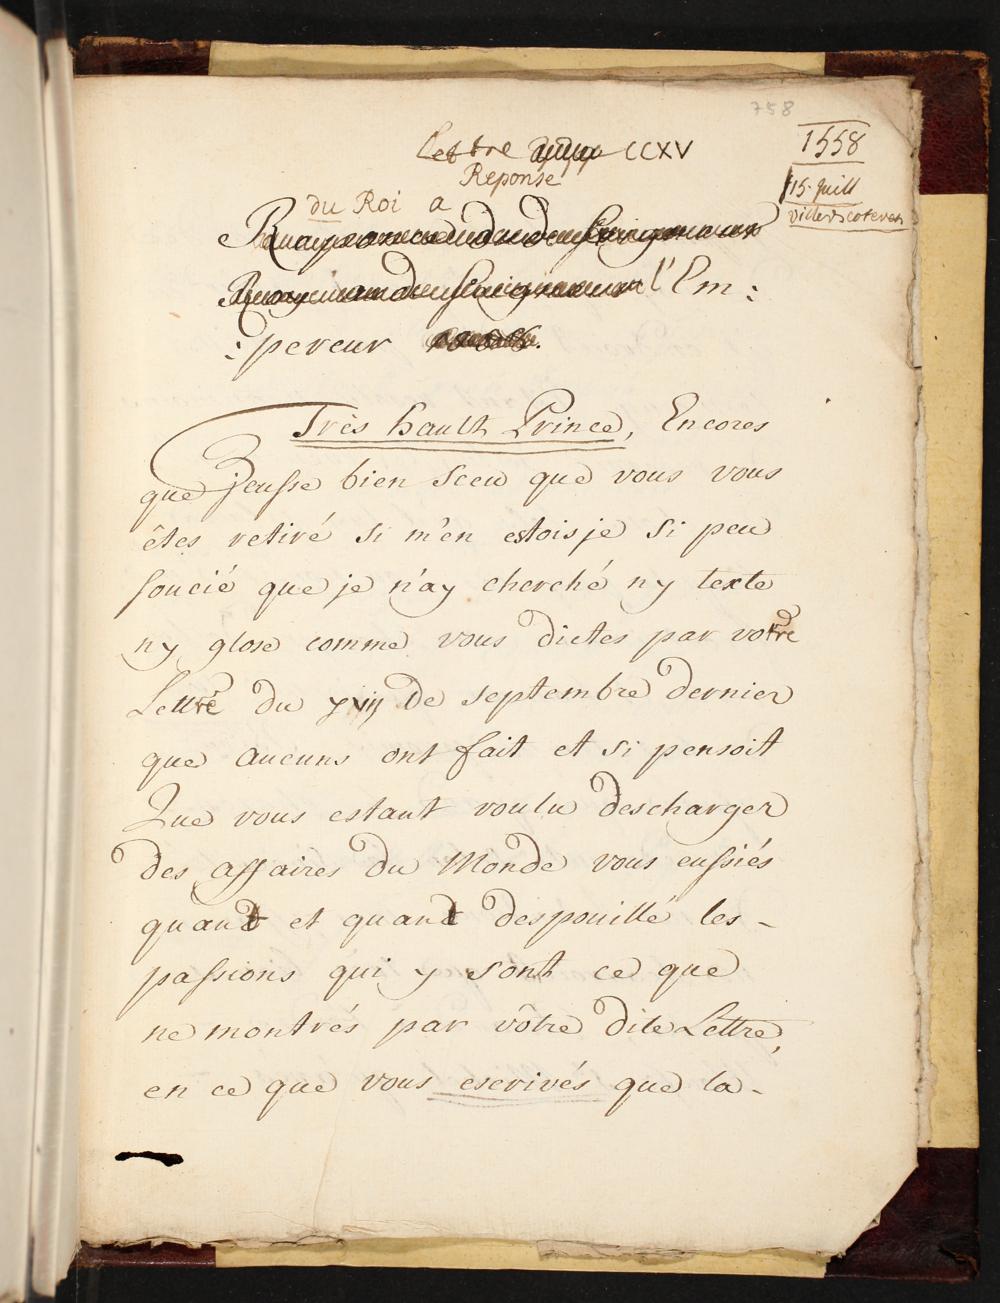 758
1558
15. Juill
villerscoteretz
Lettre CCXV
Reponse
du Roi a
l'Em:
:pereur
Très hault Prince, Encores
que Jeusse bien sceu que vous vous
êtes retiré si m'en estois je si peu
soucié que je n'ay cherché ny texte
ny glose comme vous dictes par votre
Lettre du xvij de septembre dernier
que aucuns ont fait et si pensoit
Que vous estant voulu descharger
des affaires du Monde vous eussiés
quand et quand despouillé les-
passions qui y sont ce que
ne montrés par vôtre dite Lettre,
en ce que vous escrivés que la-